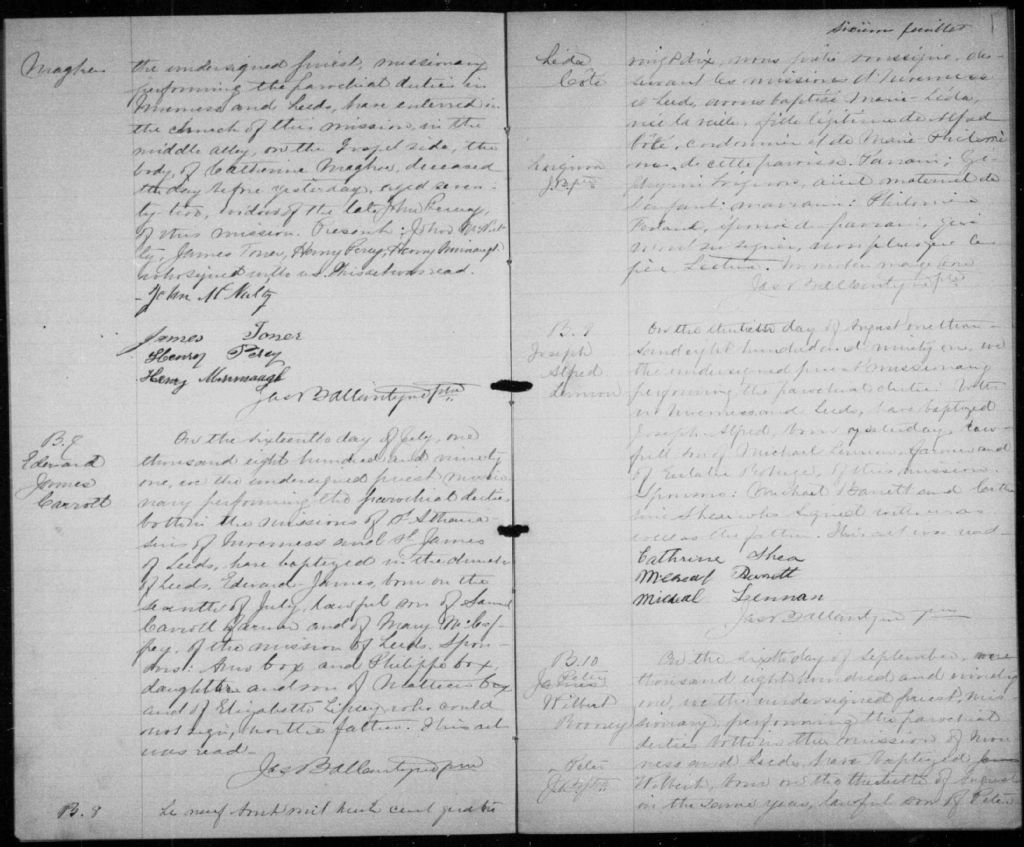 Magher
the undersigned priest, missionary
performing the parochial duties in
Inverness and Leeds, have enterred in
the church of this mission, in the
middle alley, on the Gospel side, the
body of Catherine Magher, deceased
the day before yesterday, aged seven-
ty two, widow of the late John Percy,
of this mission. Present: John McNul-
ty, James Toner, Henry Percy, Henry Minnaugh
who signed with us. This act was read.
- John McNulty
James Toner
Henry Percy
Henry Minnaugh
Jas Ballantyne ptre
B.
Edward
James
Carrott
On the sixteenth day of July, one
thousand eight hundred and ninety
one, we the undersigned priest missio
nary performing the parochial duties
both in the missions of St Athana-
sius of Inverness and St James
of Leeds, have baptized in the church
of Leeds, Edward James, born on the
of July, lawful son of Samuel
Carrott farmer and of Mary
of the mission of Leeds. Spon-
sors: Ann Cox and Philippe Cox,
daughter and son of Cox
and of Elizabeth Lipsey who could
not sign, nor the father. This act
was read -
Jas Ballantyne ptre
B. 8
Le neuf aout mil huit cent quatre
feuillet
Léda
Coté
vingt dix, nous prêtre soussigné, des-
servant les missions d'Inverness
& Leeds, avons baptisé Marie-Léda,
née la veille, fille légitime de Alfred
Côté, cordonnier & de Marie Philomè
de cette paroisse. Parrain;
aieul maternel de
l'enfant; marraine: Philomène
épouse du parrain, qui
n'ont su signer, non plus que le
père. Lecture.
Jas Ballantyne ptre
B. 9
Joseph
Alfred
Lennon
On the day of August one thou-
sand eight hundred & ninety one, we
the undersigned priest missionary
performing the parochial duties both
in Inverness and Leeds, have baptized
Joseph Alfred, born yesterday, law-
full son of Michael Lennon, farmer and
of of this mission.
Sponsors: Michael Barrett and Cathe
rine Shea who signed with us as
well as the father. This act was read -
Catherine Shea
Micheal Barrett
Micheal Lennan
Jas Ballantyne ptre
B. 10
Peter
James
Wilbert
Rooney
On the sixth day of September,
thousand eight hundred and ninety
one, we the undersigned priest, mis
sionary, performing the parochial
duties both in the mission of Inver
ness and Leeds, have baptized James
Wilbert, born on the of August
on the same year, lawful son of Peter
- Peter